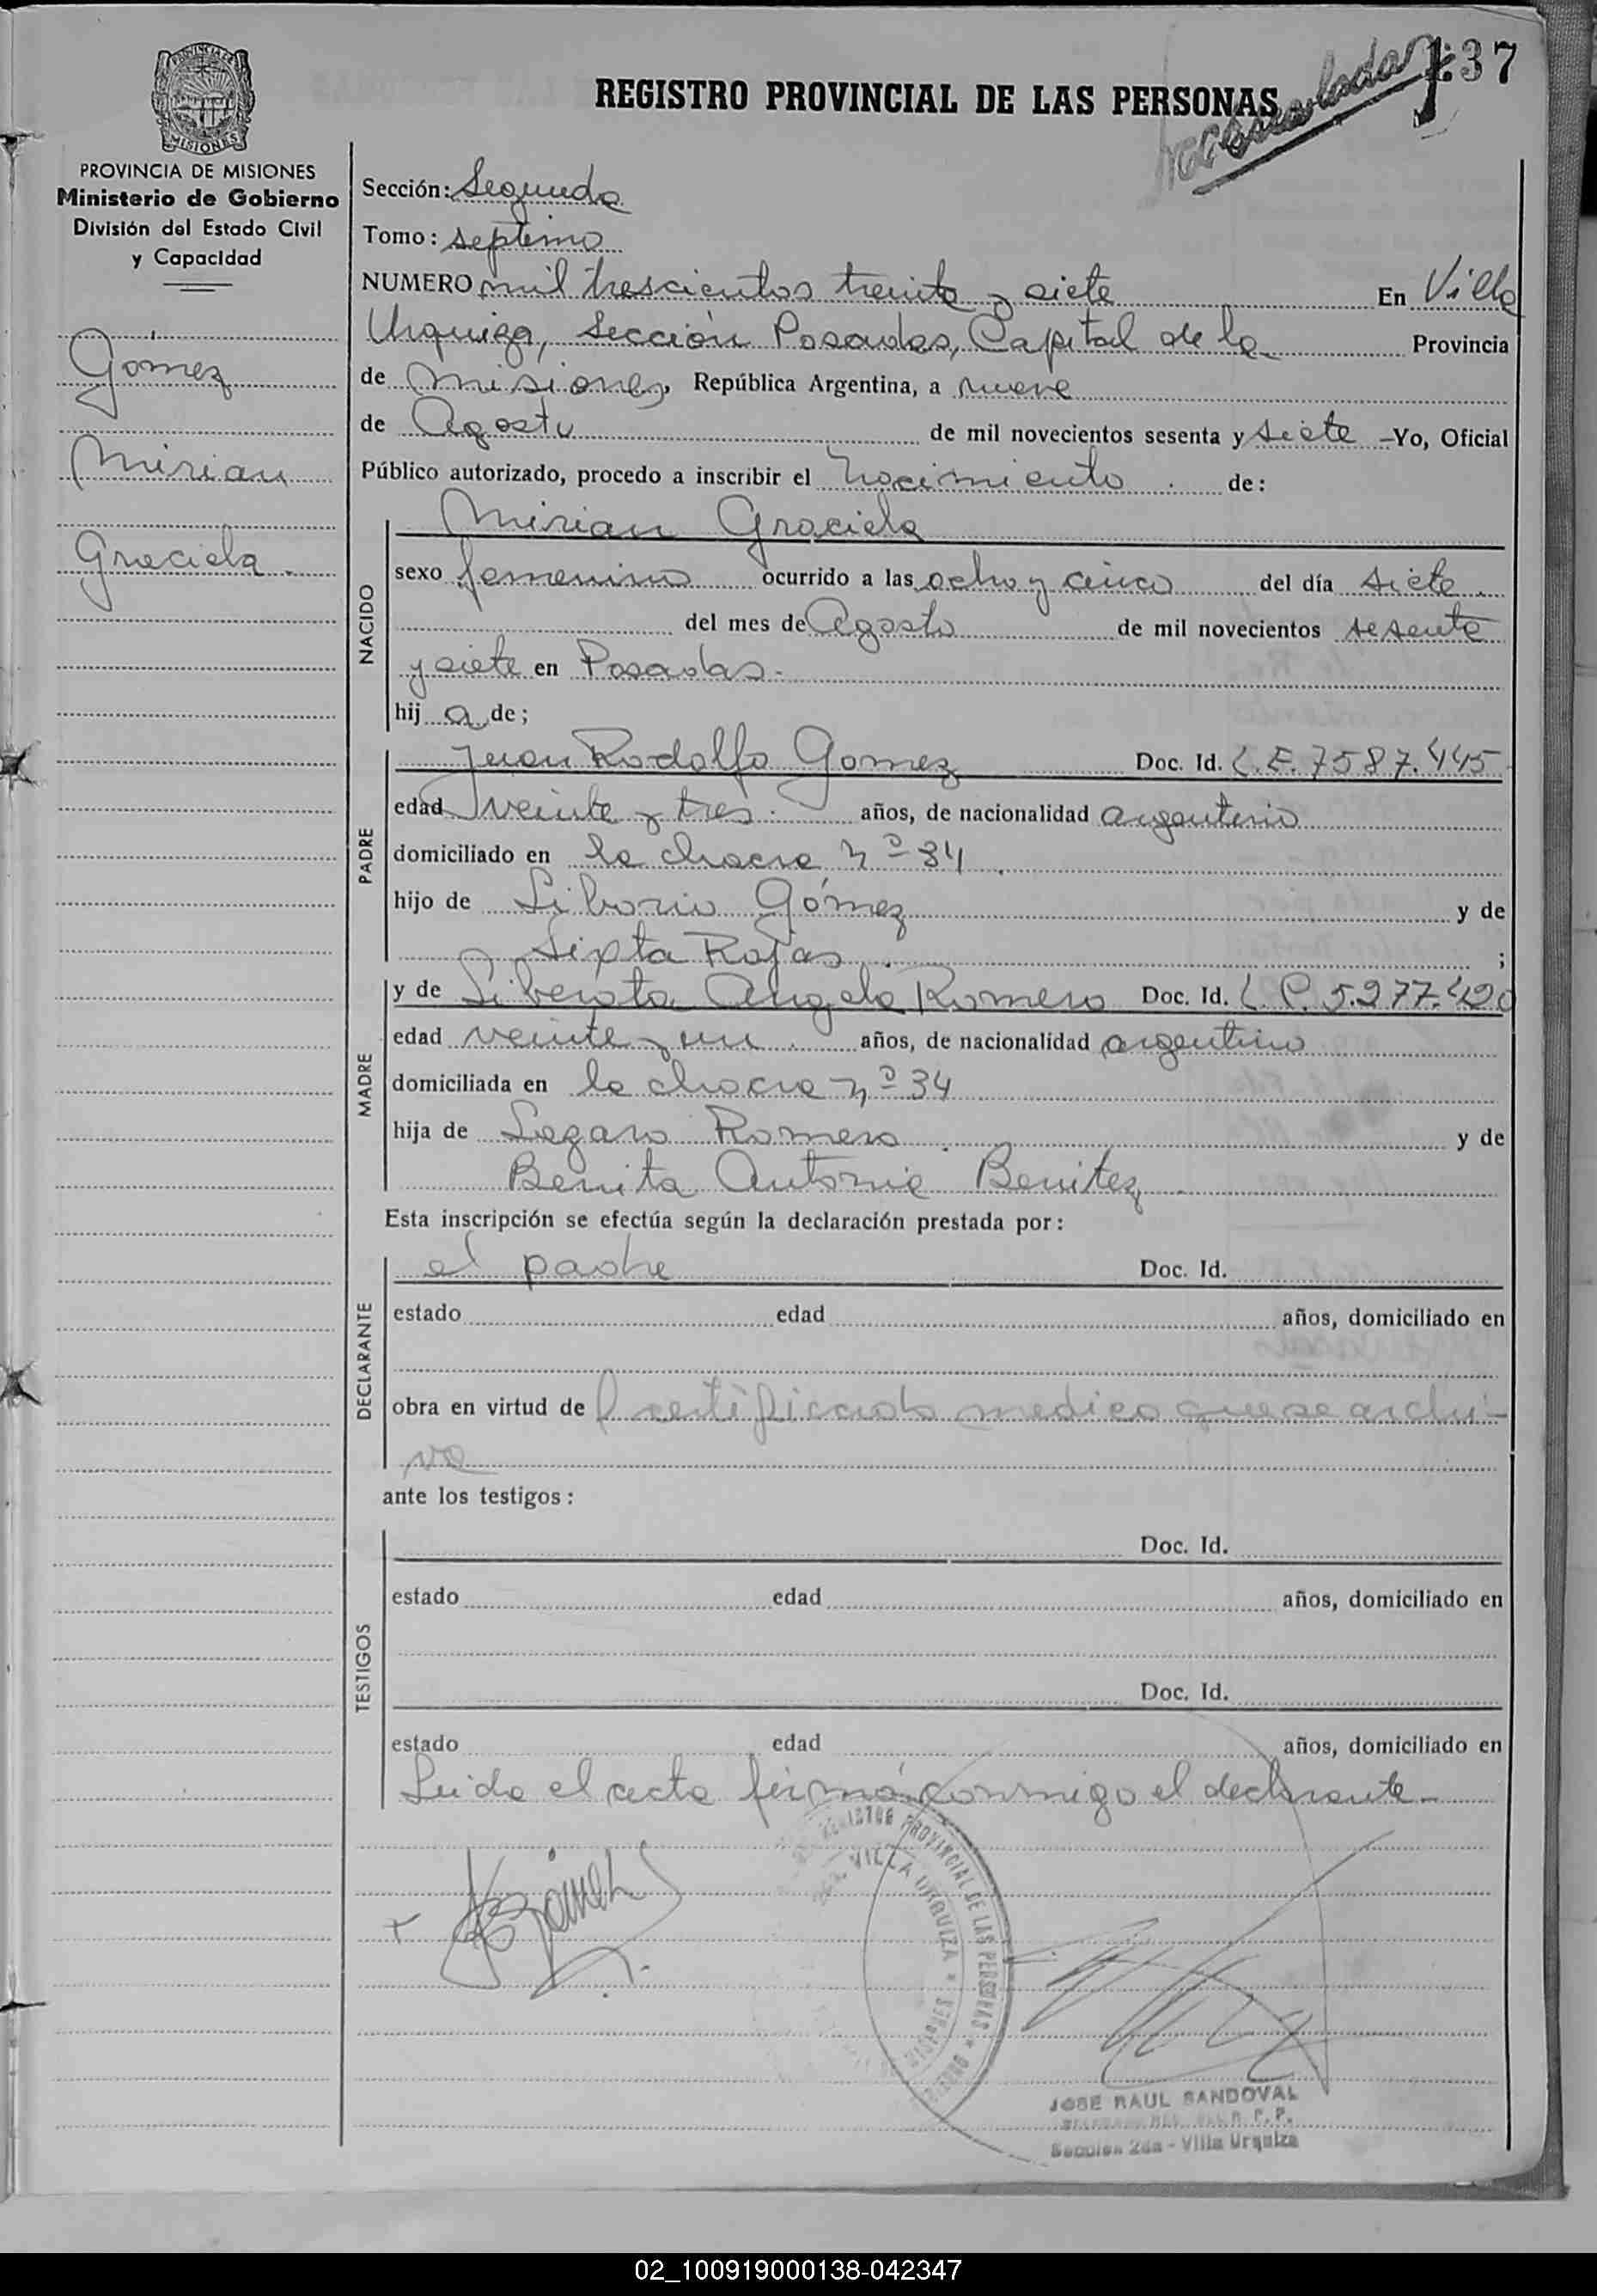 137
REGISTRO PROVINCIAL DE LAS PERSONAS
MISIONES
PROVINCIA DE MISIONES
Ministerio de Gobierno
División del Estado Civil
y Capacidad
Gómez
Mirian
Graciela.
Sección: Segunda
Tomo: septimo
NUMERO mil trescientos treinta y siete En Villa
Urquiza, Sección Posadas, Capital de la Provincia
de Misiones, República Argentina, a nueve
de Agosto de mil novecientos sesenta y siete - Yo, Oficial
Público autorizado, procedo a inscribir el nacimiento de:
NACIDO
Mirian Graciela
sexo femenino ocurrido a las ocho y cinco del día siete
del mes de Agosto de mil novecientos sesenta
y siete en Posadas.
hij a de;
PADRE
Juan Rodolfo Gomez Doc. Id. L.E. 7587.445
edad veinte y tres años, de nacionalidad argentino
domiciliado en la chacra nº 34
hijo de Liborio Gómez y de
Sixta Rojas ;
MADRE
y de Liberata Angela Romero Doc. Id. L.C. 5.277.420
edad veinte y un años, de nacionalidad argentina
domiciliada en la chacra nº 34
hija de Lazaro Romero y de
Benita Antonia Benitez
Esta inscripción se efectúa según la declaración prestada por:
DECLARANTE
el padre Doc. Id.
estado edad años, domiciliado en
obra en virtud de certificado medico que se archi-
va
ante los testigos:
TESTIGOS
Doc. Id.
estado edad años, domiciliado en
Doc. Id.
estado edad años, domiciliado en
Leida el acta firmó conmigo el declarante-
REGISTRO PROVINCIAL DE LAS PERSONAS
VILLA URQUIZA * MISIONES
JOSE RAUL SANDOVAL
Seccion 2da - Villa Urquiza
02_100919000138-042347